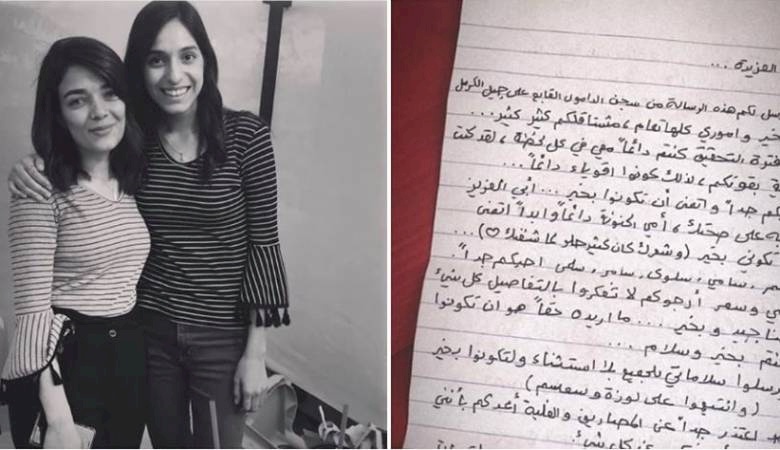 العزيزة ...
لكم هذه الرسالة من سجن الدامون القابع على جبل الكرمل
وأموري كلها تمام، مشتاقلكم كثير كثير...
فترة التحقيق كنتم دائماً معي في كل لحظة، لقد كنت
بقوتكم، لذلك كونوا أقوياء دائماً...
جداً واتمنى أن تكونوا بخير ... أبي العزيز
على صحتك، أمي الحنونة دائماً وابداً اتمنى
تكوني بخير (وشوك كان كثير حلو لما شفتك ♡)...
سامي، سلوى، سامر، سلمى احبكم جداً.
وسمر أرجوكم لا تفكروا بالتفاصيل كل شيء
وبخير .... ما اريده حقاً هو ان تكونوا
بخير وسلام ...
سلاماتي للجميع بلا استثناء ولتكونوا بخير
(وانتبهوا على لوزة وسمسم)
اعتذر جداً عن المصاريف والغلبة أعدكم بأنني
عن كل شيء